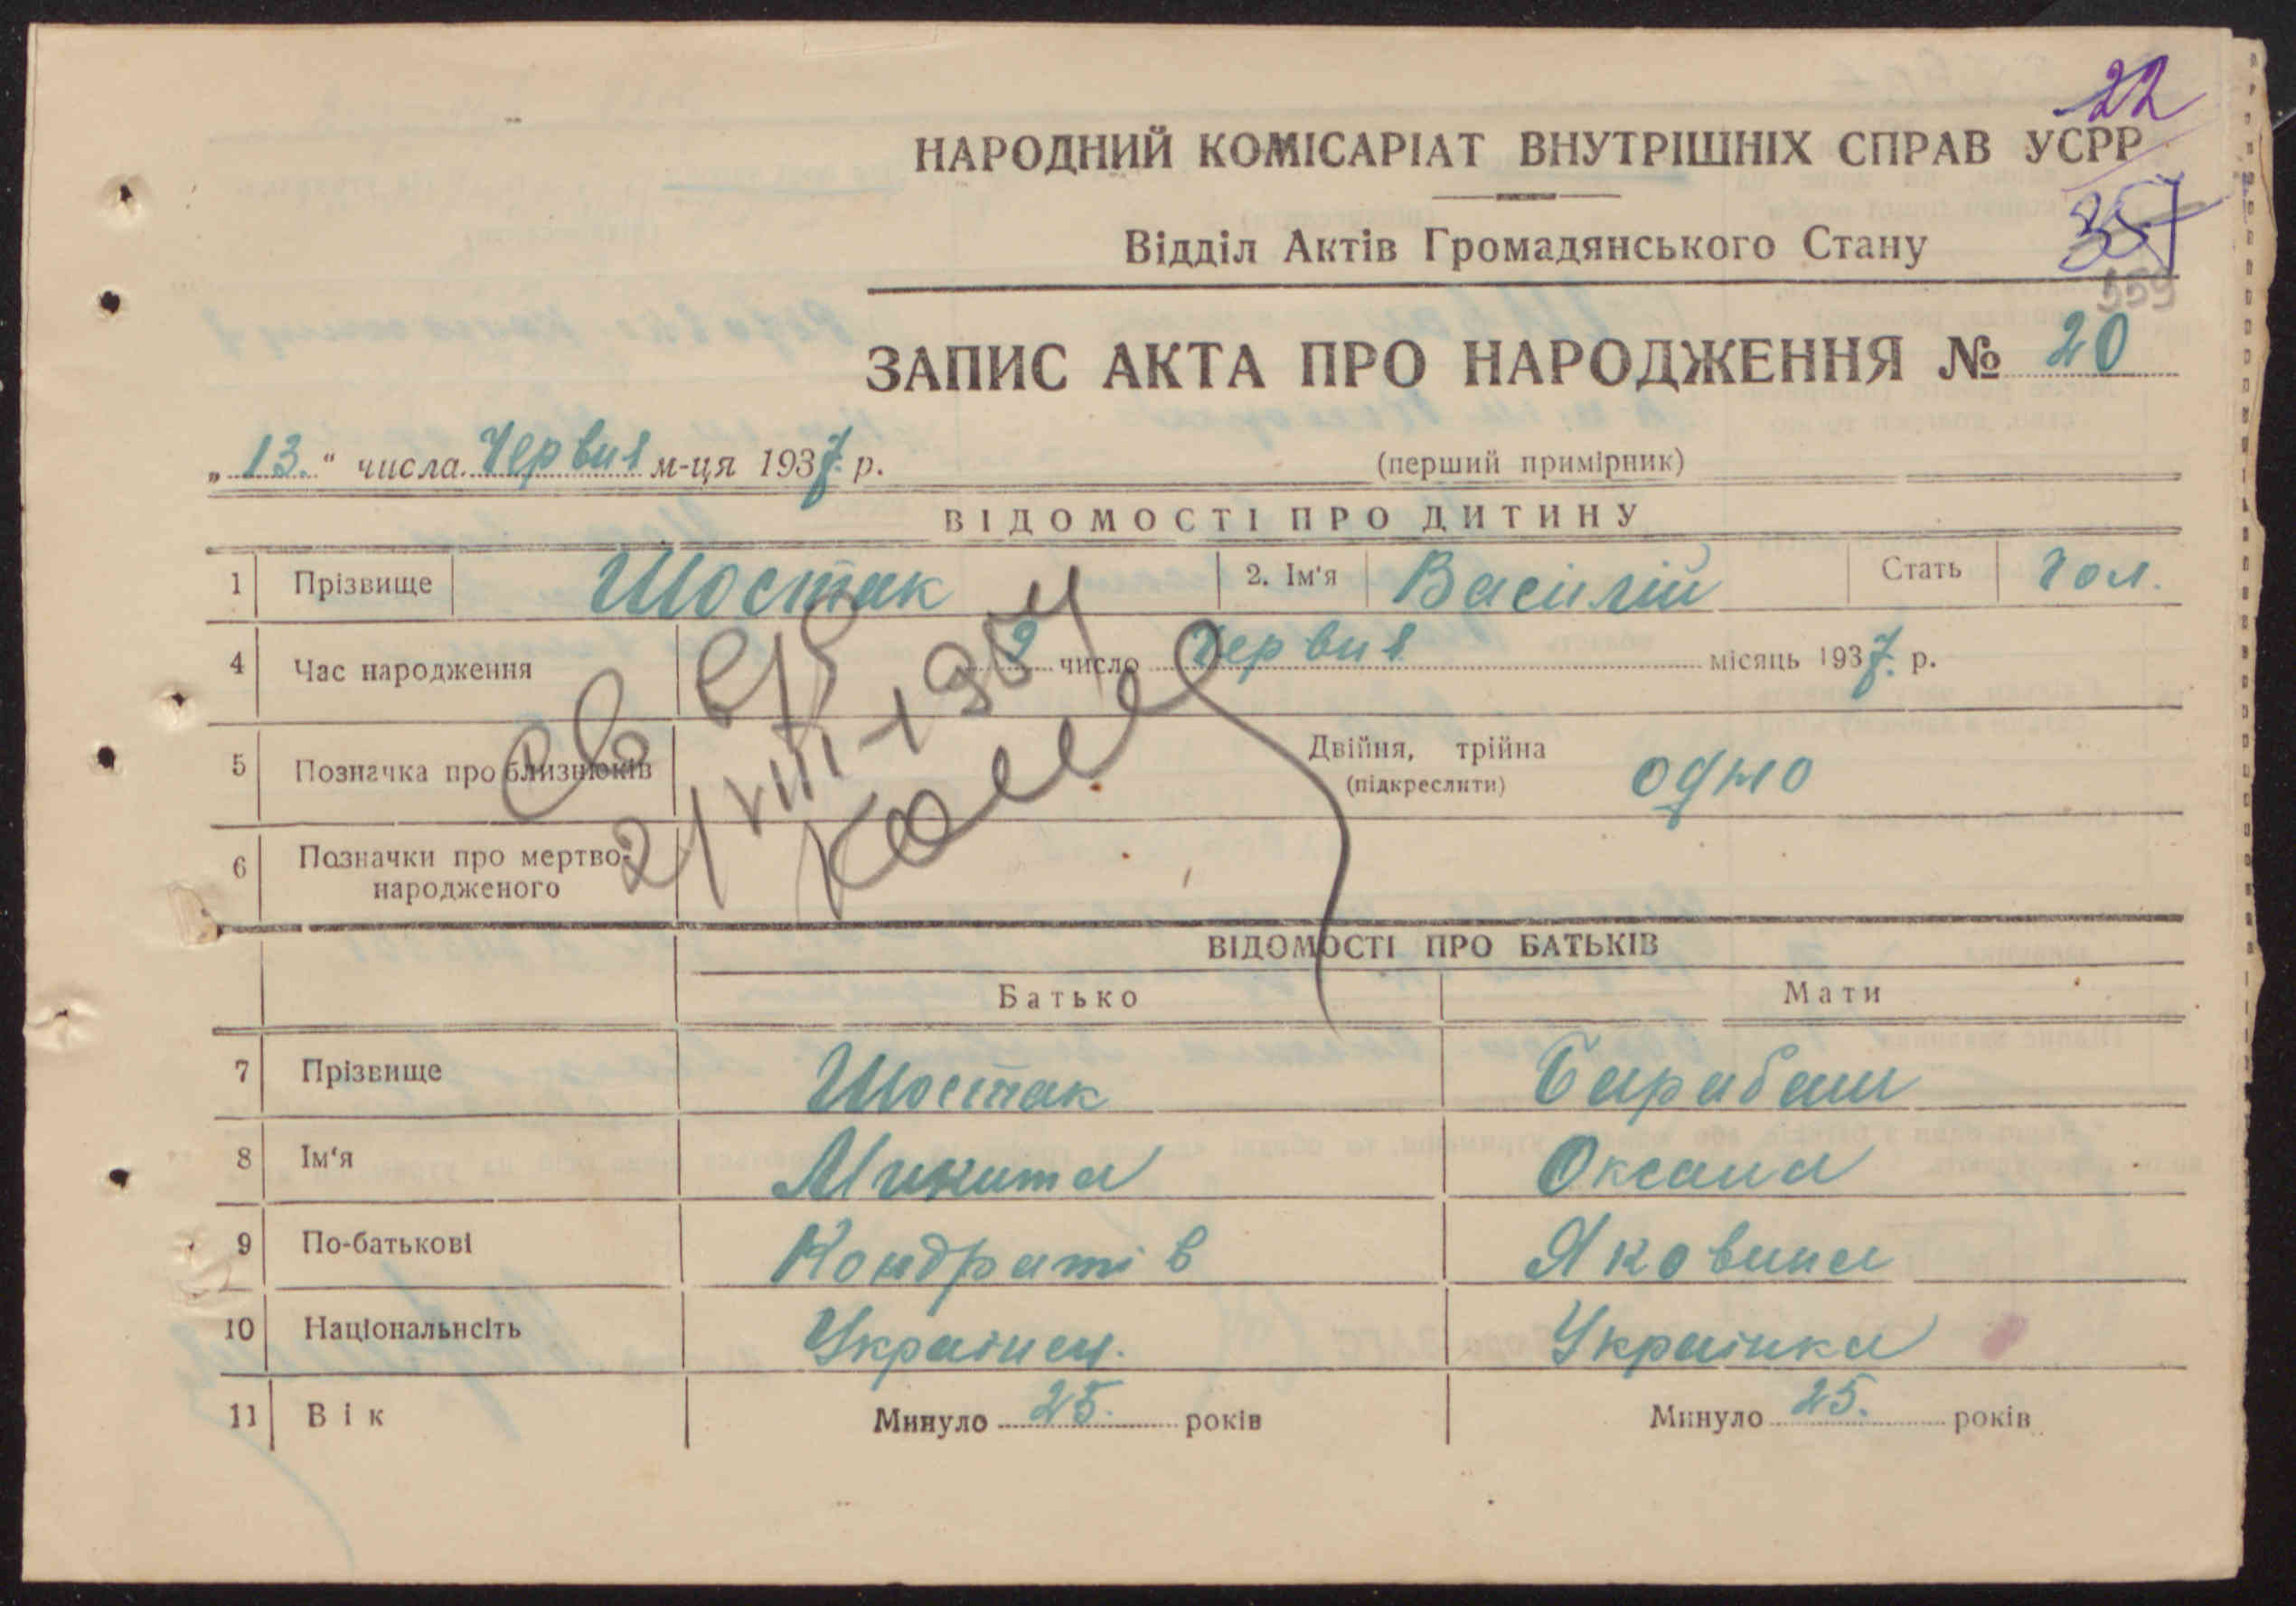 22
НАРОДНИЙ КОМІСАРІАТ ВНУТРІШНІХ СПРАВ УСРР
357
Відділ Актів Громадянського Стану
359
ЗАПИС АКТА ПРО НАРОДЖЕННЯ № 20
„13.“ числа Червня м-ця 1937 р. (перший примірник)
ВІДОМОСТІ ПРО ДИТИНУ
1 Прізвище Шостак 2. Ім'я Василій Стать Чол.
4 Час народження 9 число Червня місяць 1937. р.
5 Позначка про близнюків Двійня, трійна (підкреслити) одно
6 Позначки про мертво-
народженого
21/VIII-1954
ВІДОМОСТІ ПРО БАТЬКІВ
Батько Мати
7 Прізвище Шостак Барабаш
8 Ім'я Микита Оксана
9 По-батькові Кондратів Яковина
10 Національнсіть Українец. Українка
11 Вік Минуло 25. років Минуло 25. років